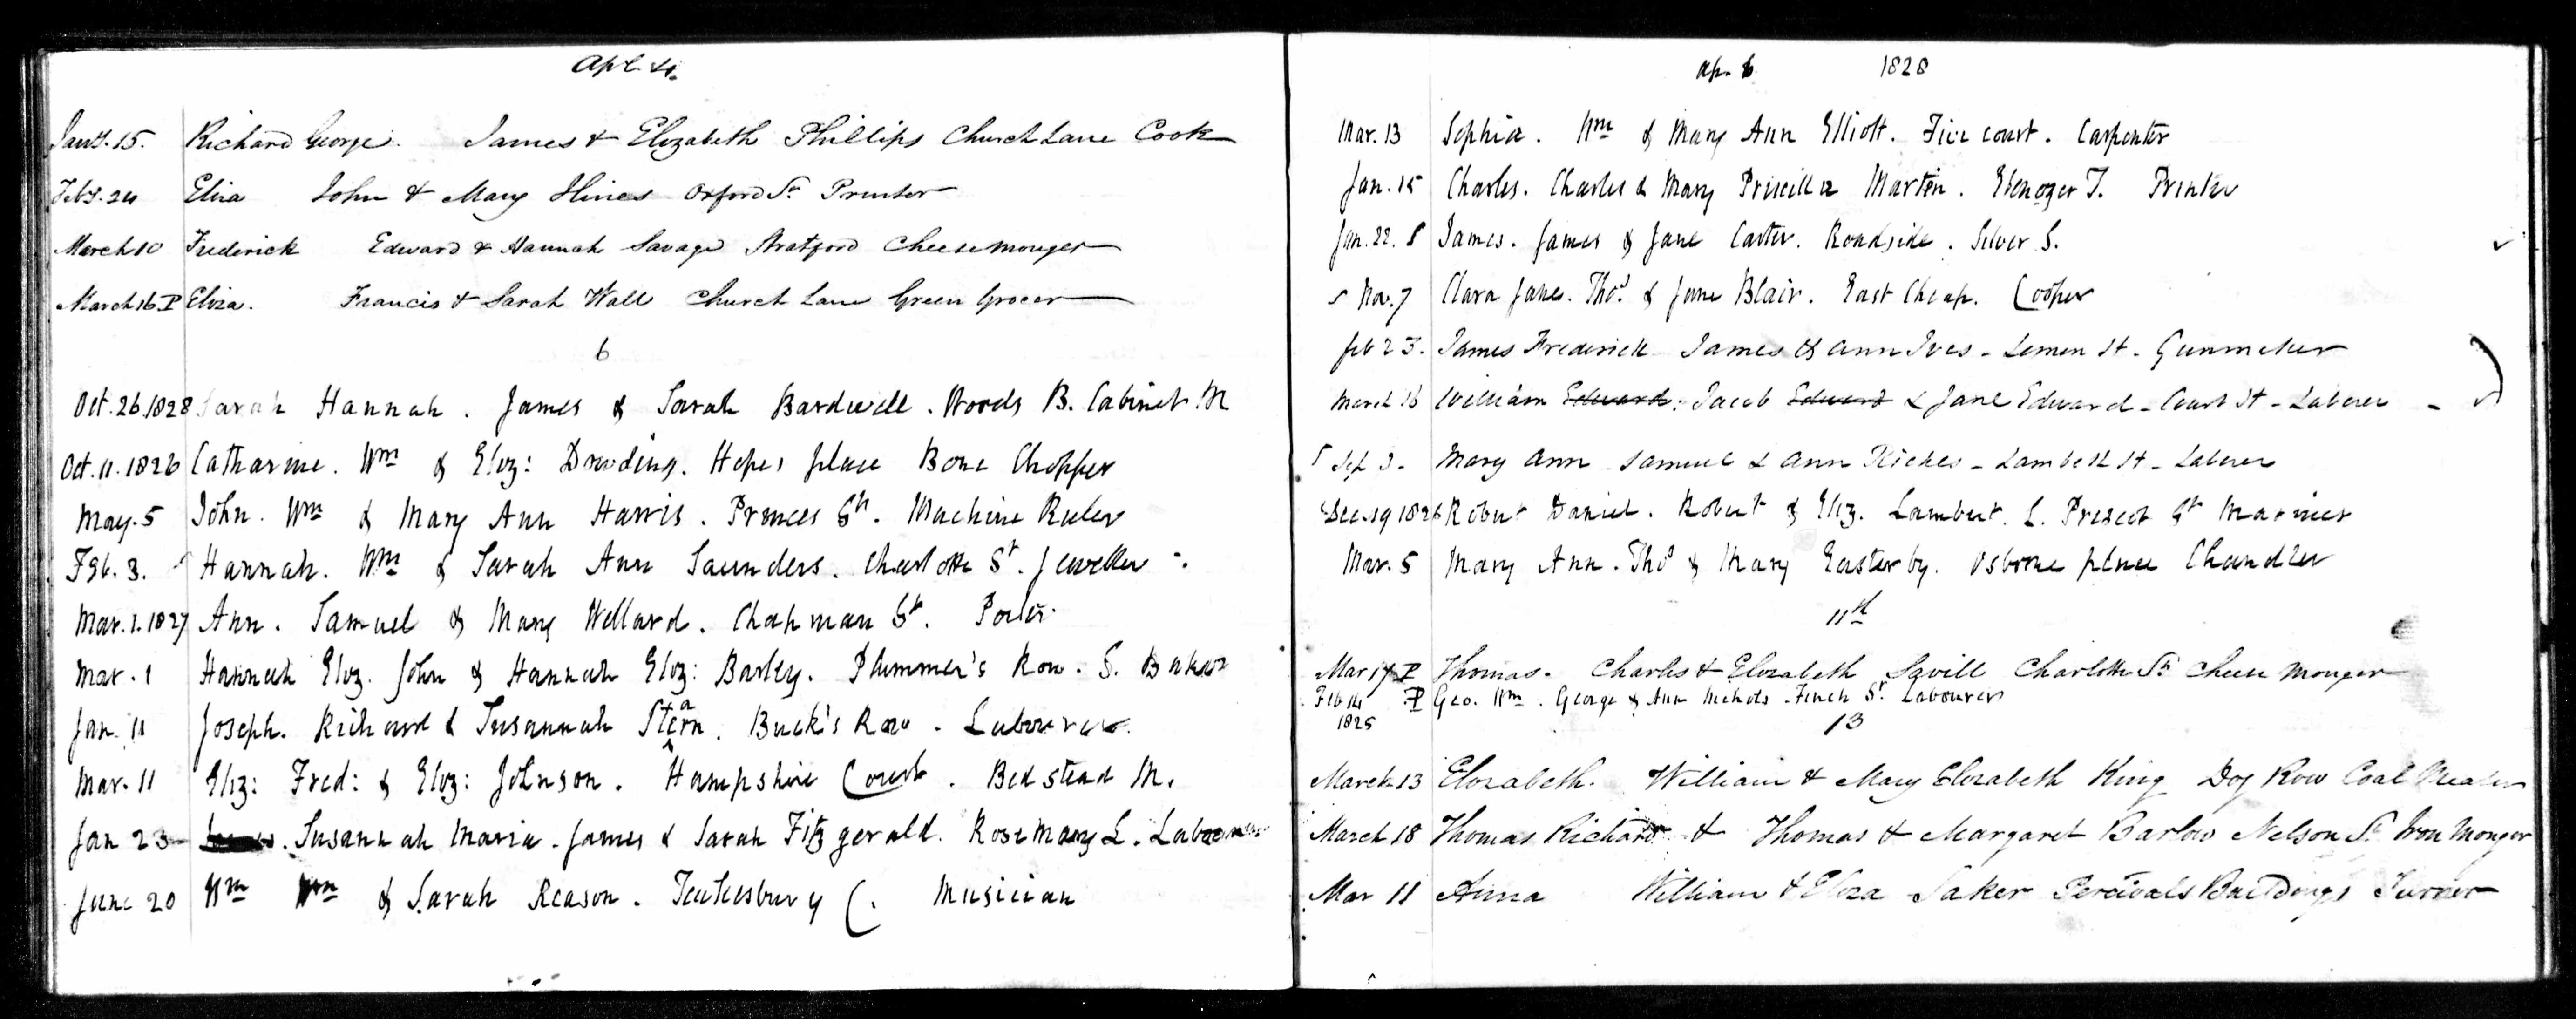 Apl. 4.
Jany. 15. Richard George. James & Elizabeth Phillips Church Lane Cook
Feby. 24 Eliza John & Mary Hines Oxford St. Printer
March 10 Frederick Edward & Hannah Savage Stratford Cheesemonger
March 16 P Eliza. Francis & Sarah Wall Church Lane Green Grocer
6
Oct. 26. 1828 Sarah Hannah. James & Sarah Bardwell. Woods B. Cabinet M
Oct. 11. 1826 Catharine. Wm & Eliz: Dowding. Hopes place Bone Chopper
May. 5 John. Wm & Mary Ann Harris. Princes St. Machine Ruler
Feb. 3. Hannah. Wm & Sarah Ann Saunders. Charlotte St. Jeweller
Mar. 1. 1827 Ann. Samuel & Mary Wellard. Chapman St. Porter
Mar. 1 Hannah Eliz. John & Hannah Eliz: Barley. Plummer's Row. S. Baker
Jan. 11 Joseph. Richard & Susannah Stearn. Buck's Row. Labourer.
Mar. 11 Eliz: Fred: & Eliz: Johnson. Hampshire Court. Bedstead M.
Jan 23 Susannah Maria. James & Sarah Fitzgerald. Rosemary L. Labourer
June 20 Wm Wm & Sarah Reason. Tewkesbury C. Musician
Ap. 6 1828
Mar. 13 Sophia. Wm & Mary Ann Elliott. Court. Carpenter
Jan. 15 Charles. Charles & Mary Priscilla Martin. Ebenezer T. Printer
Jan. 22. S James. James & Jane Carter. Roadside. Silver S.
Nov. 7 Clara Jane. Thos. & Jane Blair. East Cheap. Cooper
Feb 23. James Frederick James & Ann Ives - Lemon St - Gunmaker
March 16 William Edward. Jacob Edward & Jane Edward - Court St - Laborer
Sep 3 - Mary Ann Samuel & Ann Riches - Lambeth St - Laborer
Dec. 19 1826 Robert Daniel. Robert & Eliz. Lambert. L. Prescot St Mariner
Mar. 5 Mary Ann. Thos & Mary Easterby. Osborne place Chandler
11th
Mar 17 P Thomas. Charles & Elizabeth Savill Charlotte St. Cheese Monger
Feb 14 P Geo. Wm. George & Ann Nichols. Finch St. Labourer
1825
13
March 13 Elizabeth. William & Mary Elizabeth King Dog Row Coal Dealer
March 18 Thomas Richard & Thomas & Margaret Barlow Nelson St. Iron Monger
Mar 11 Anna William & Eliza Saker Percivals Buildings Turner